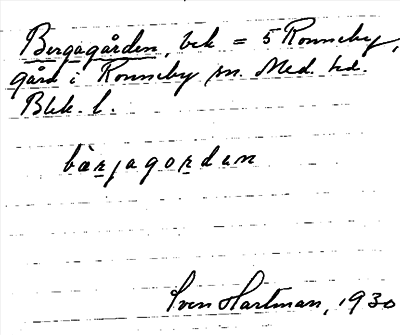 Bergagården, bek = 5 Ronneby,
gård i Ronneby sn. Med. hd.
Blek. l.
bærjagorden
Sven Hartman, 1930